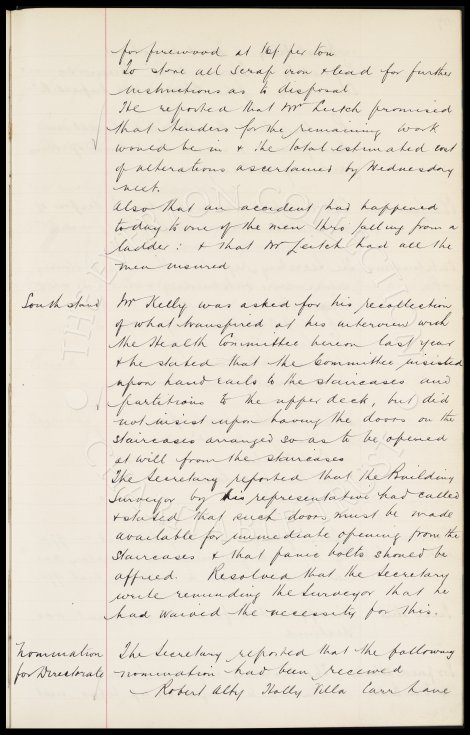 for firewood at 16/- per ton
To store all scrap iron & lead for further
instructions as to disposal
He reported that Mr Leitch promised
that tenders for the remaining work
would be in & the total estimated cost
of alterations ascertained by Wednesday
next.
Also that an accident had happened
today to one of the men thro falling from a
ladder: & that Mr Leitch had all the
men insured
South stand
Mr Kelly was asked for his recollection
of what transpired at his interview with
the Health Committee hereon last year
& he stated that the Committee insisted
upon hand rails to the staircases and
partitions to the upper deck, but did
not insist upon having the doors on the
staircases arranged so as to be opened
at will from the staircases
The Secretary reported that the Building
Surveyor by his representative had called
& stated that such doors must be made
available for immediate opening from the
staircases & that panic bolts should be
affixed. Resolved that the Secretary
write reminding the Surveyor that he
had waived the necessity for this.
Nomination
for Directorate
The Secretary reported that the following
nomination had been received
Robert Alty Holly Villa Carr Lane